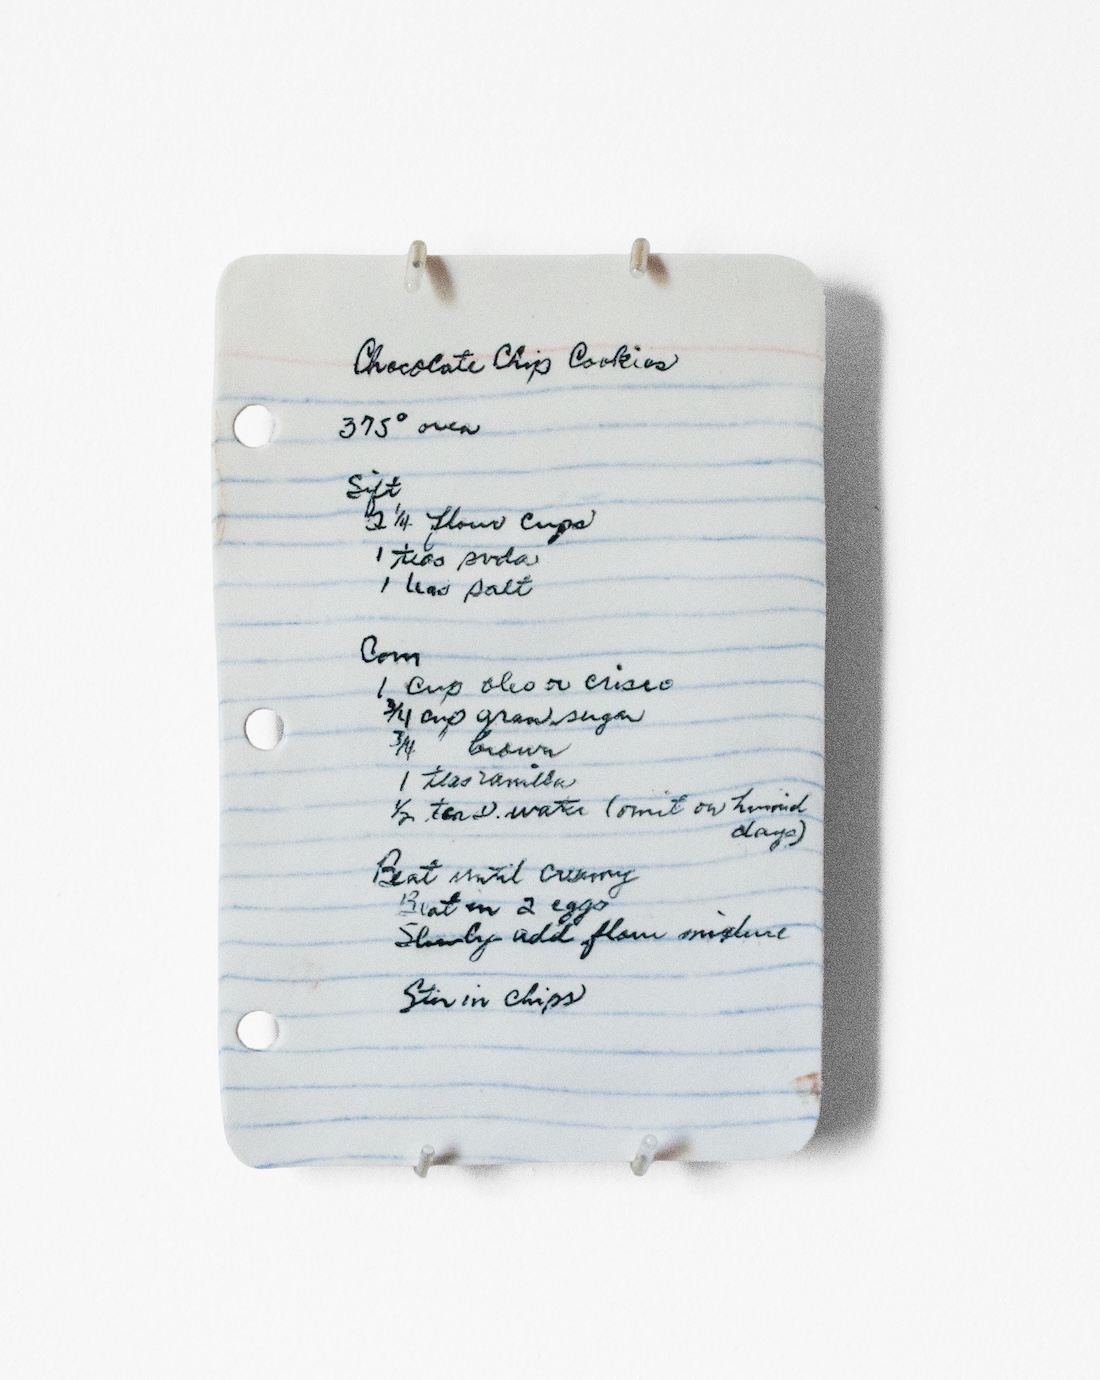 Chocolate Chip Cookies
375° oven
Sift
2 1/4 flour cups
1 teas soda
1 teas salt
Com
1 cup oleo or crisco
3/4 cup gran. sugar
3/4 " brown
1 teas vanilla
1/2 teas. water (omit on humid
days)
Beat until creamy
Beat in 2 eggs
Slowly add flour mixture
Stir in chips